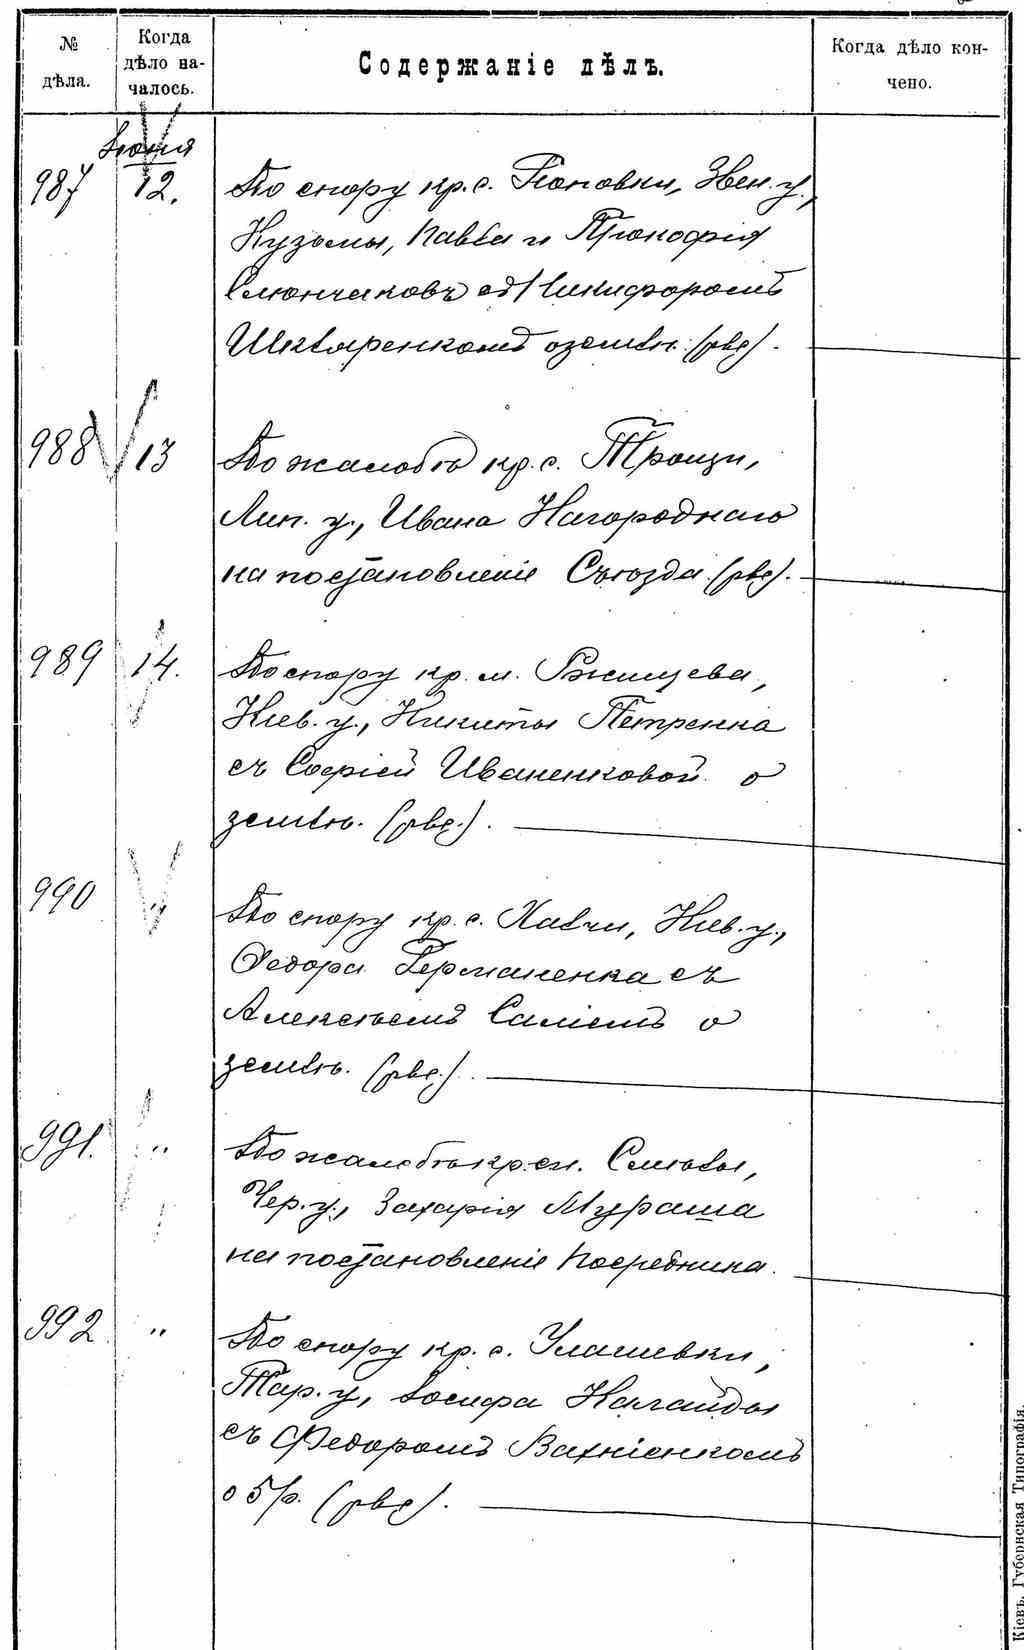 № дѣла.
Когда дѣло началось.
Содержаніе дѣлъ.
Когда дѣло кончено.
Іюня
987 12. По спору кр. с. Поповки, Звен. у.,
Кузьмы, Павла и Прокофія
съ Никифоромъ
Шкваренкомъ о землѣ. (рвд).
988 13 По жалобѣ кр. с. Трощи,
Лип. у., Ивана Нагороднаго
на постановленіе Съѣзда. (рвд).
989 14. По спору кр. м. Ржищева,
Кіев. у., Никиты Петренка
съ Софіей Иваненковой о
землѣ. (рвд.).
990 " По спору кр. с. Халчи, Кіев. у.,
Федора Германенка съ
Алексѣемъ Саліемъ о
землѣ. (рвд.).
991. " По жалобѣ кр. см. Смѣлы,
Чер. у., Захарія Мураша
на постановленіе Посредника.
992 " По спору кр. с. Улашевки,
Тар. у., Іосифа Налайды
съ Федоромъ Вахніенкомъ
о 5 р. (рвд).
Кіевъ. Губернская Типографія.